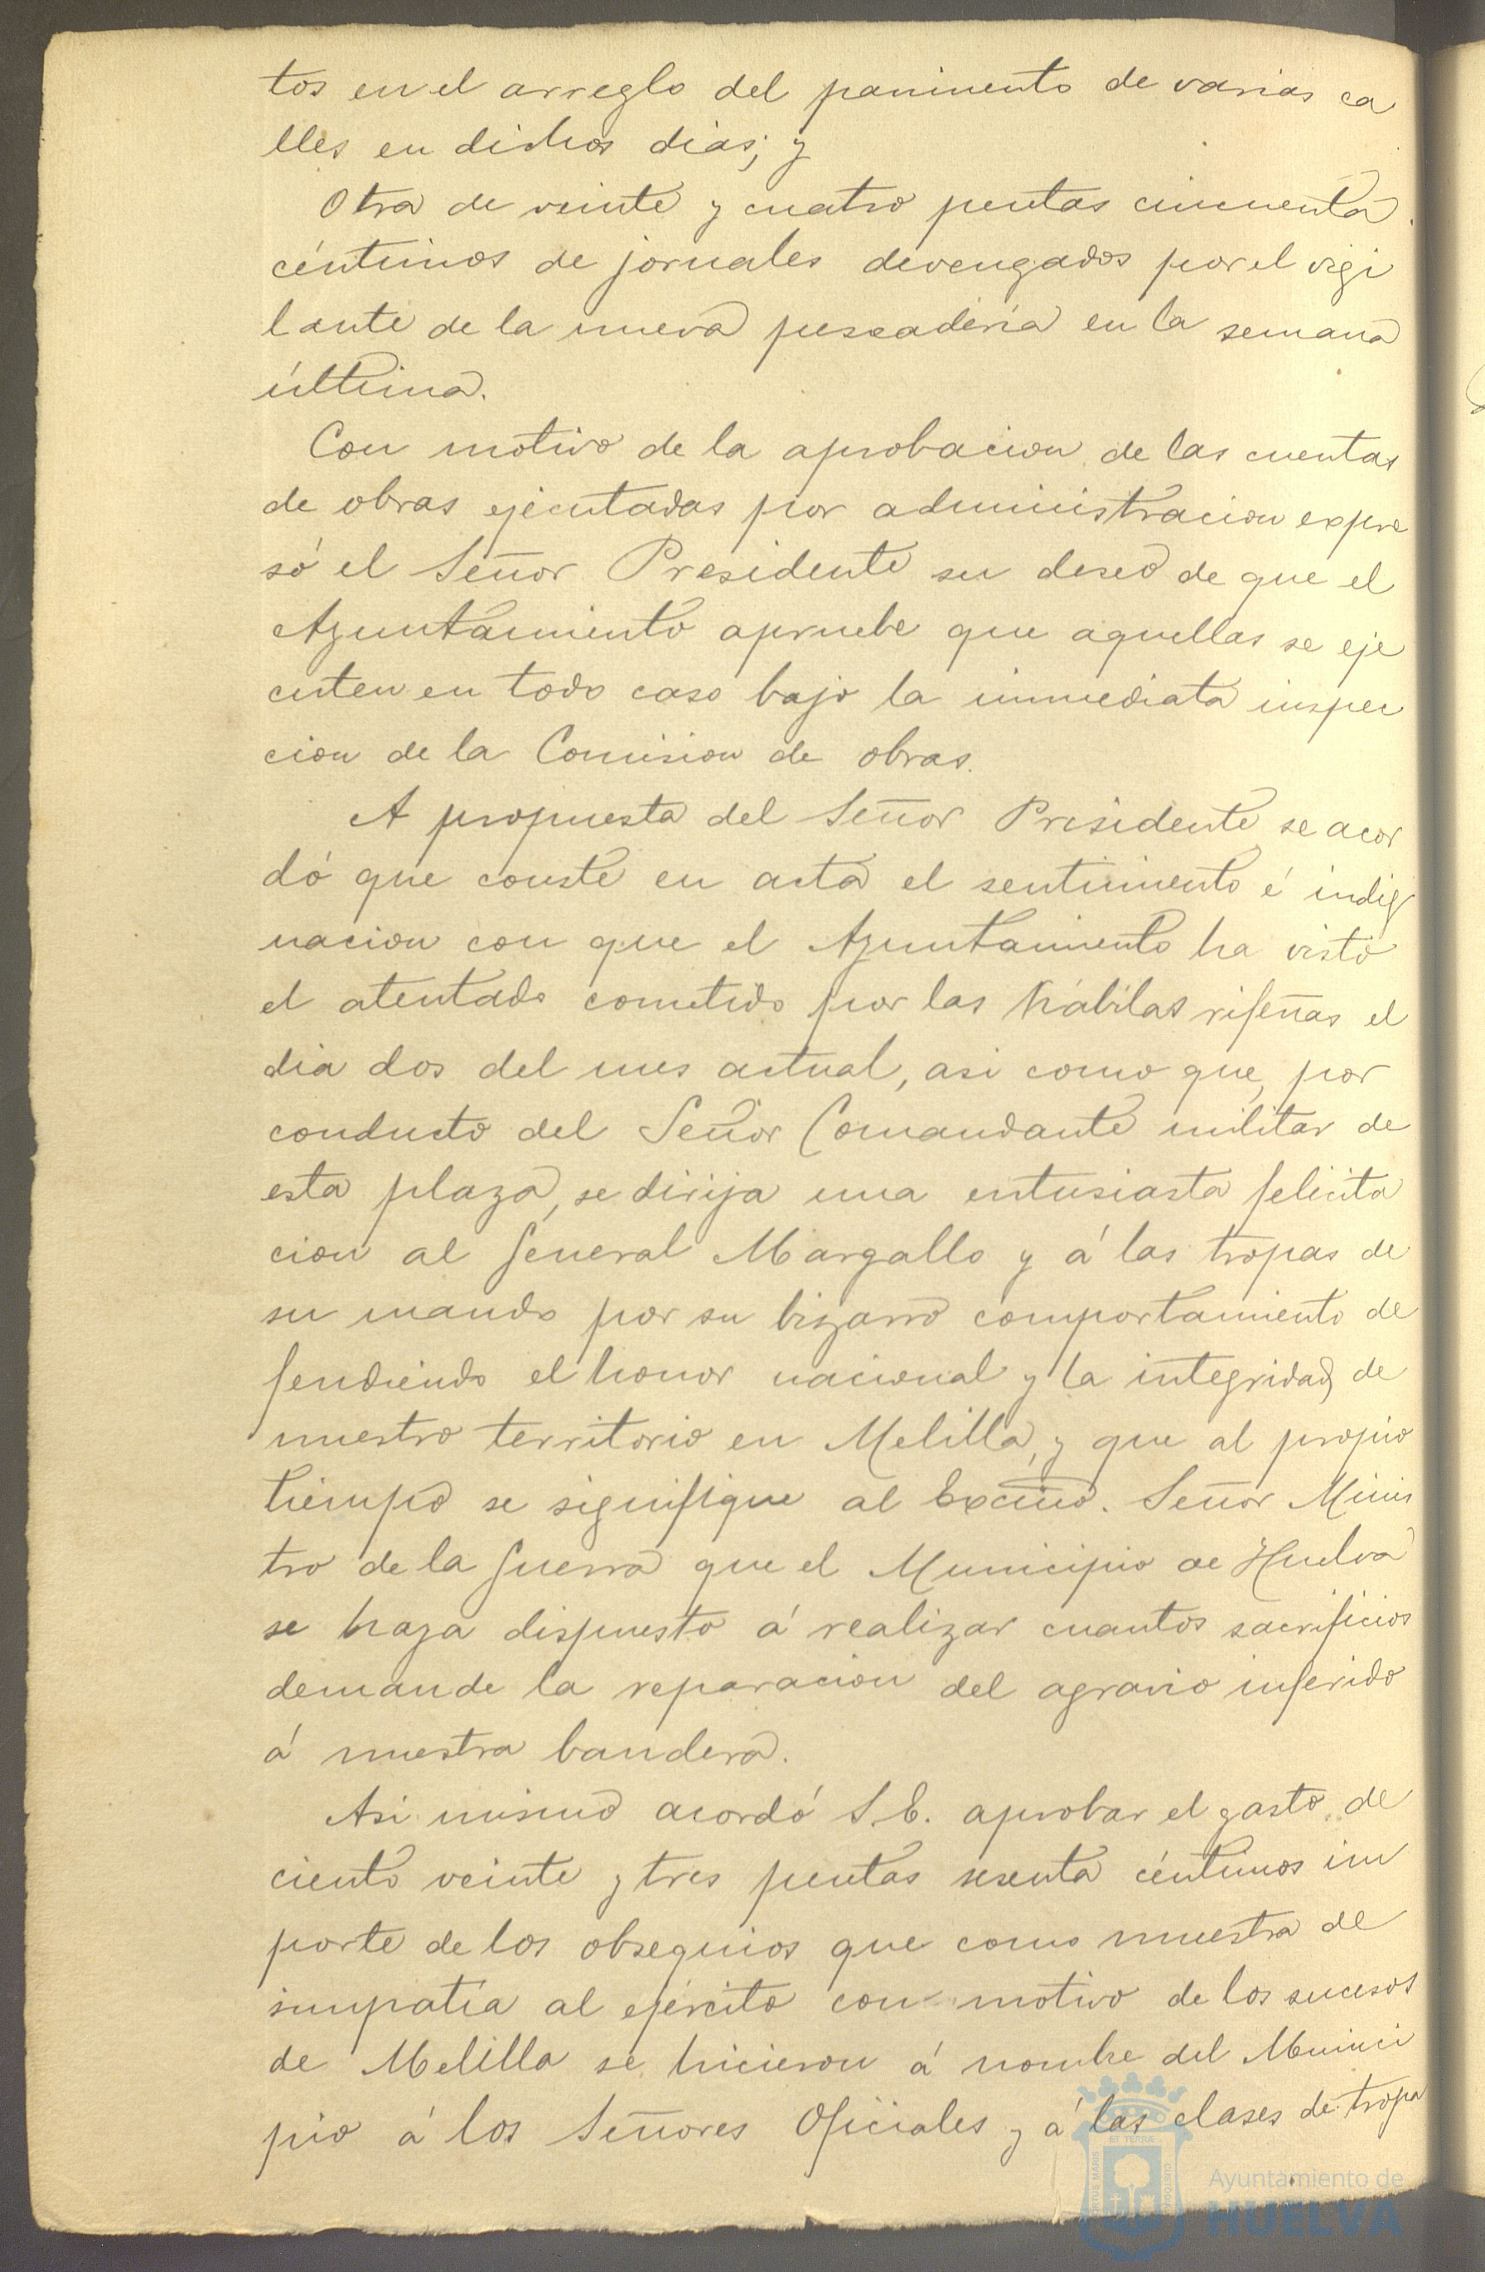 tos en el arreglo del pavimento de varias ca
lles en dichos dias; y
Otra de veinte y cuatro pesetas cincuenta
céntimos de jornales devengados por el vigi
lante de la nueva pescadería en la semana
última.
Con motivo de la aprobacion de las cuentas
de obras ejecutadas por administracion expre
só el Señor Presidente su deseo de que el
Ayuntamiento apruebe que aquellas se eje
cuten en todo caso bajo la inmediata inspec
cion de la Comision de obras.
A propuesta del Señor Presidente se acor
dó que conste en acta el sentimiento é indig
nacion con que el Ayuntamiento ha visto
el atentado cometido por las Kábilas rifeñas el
dia dos del mes actual, asi como que, por
conducto del Señor Comandante militar de
esta plaza, se dirija una entusiasta felicita
cion al General Margallo y á las tropas de
su mando por su bizarro comportamiento de
fendiendo el honor nacional y la integridad de
nuestro territorio en Melilla, y que al propio
tiempo se signifique al Excmo. Señor Minis
tro de la Guerra que el Municipio de Huelva
se haya dispuesto á realizar cuantos sacrificios
demande la reparacion del agravio inferido
á nuestra bandera.
Asi mismo acordó S.E. aprobar el gasto de
ciento veinte y tres pesetas sesenta céntimos im
porte de los obsequios que como muestra de
simpatía al ejército con motivo de los sucesos
de Melilla se hicieron á nombre del Munici
pio á los Señores Oficiales y á las clases de tropa
Ayuntamiento de
HUELVA